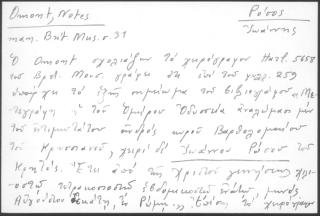 Omont, Notes Ρόσος
man. Brit Mus. σ. 31 Ἰωάννης
Ὁ Omont σχολιάζων τὸ χειρόγραφον Harl. 5658
τοῦ Βρετ. Μουσ. γράφει ὅτι ἐπὶ τοῦ φύλλ. 259
ὑπάρχει τὸ ἑξῆς σημείωμα τοῦ βιβλιογράφου "Με-
τεγράφη ἡ τοῦ Ὁμήρου Ὀδύσσεια ἀναλώμασι μὲν
τοῦ τιμιωτάτου ἀνδρὸς κυροῦ Βαρθολομαίου
τοῦ χειρὶ δὲ Ἰωάννου Ῥώσου τοῦ
Κρητός. Ἔτει ἀπὸ τῆς Χριστοῦ γεννήσεως χιλι-
οστῷ τετρακοσιοστῷ ἑβδομηκοστῷ ἐνάτῳ, μηνὸς
Αὐγούστου δεκάτῃ, ἐν Ῥώμῃ,, τὸ χειρόγραφον